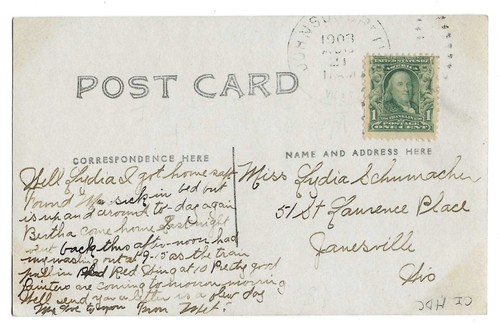 1903
AUG
21
POST CARD
UNITED STATES OF AMERICA
1 1
POSTAGE
ONE CENT
CORRESPONDENCE HERE
NAME AND ADDRESS HERE
Well Lydia I got home safe
Found Ma sick in bed but
is up and around to-day again
Bertha come home last night
went back this after-noon had
my washing out at 9.45 as the train
pull in Red Wing at 10 Pretty good
Painters are coming to morrow morning
Well send you a letter in a few days
From
Miss Lydia Schumacher
51 St Lawrence Place
Janesville
Wis